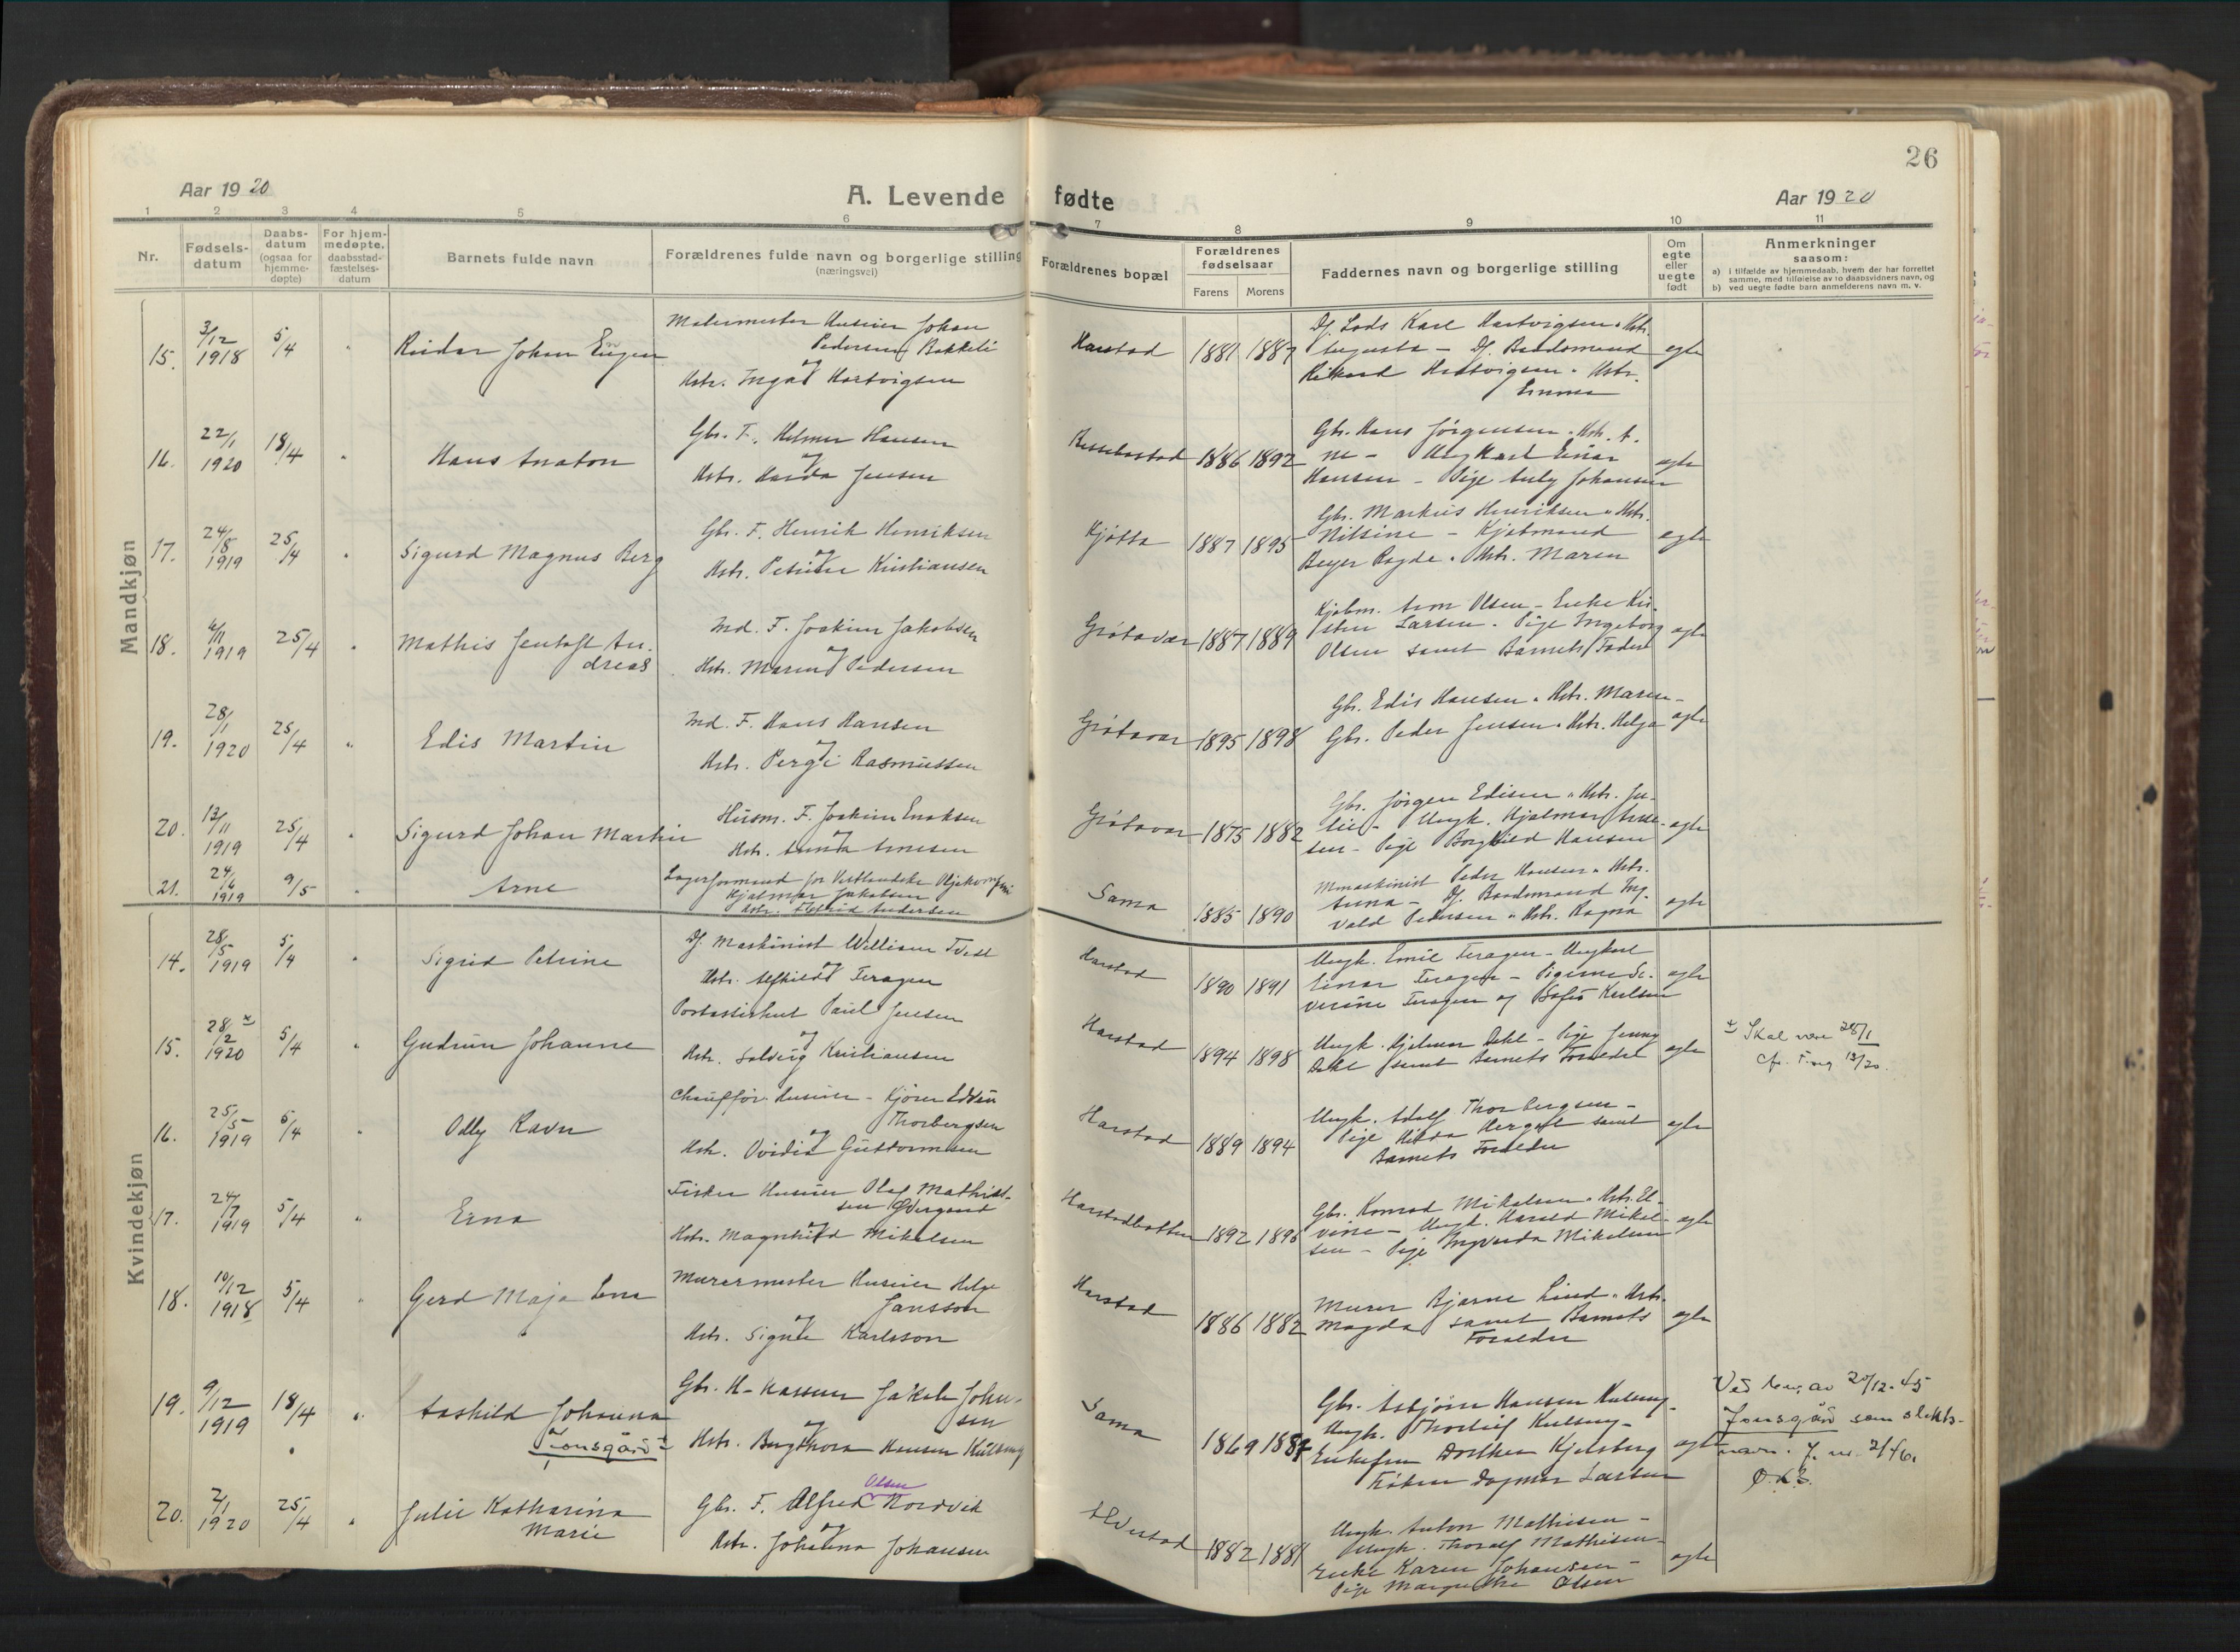 26
Aar 1920
A. Levende fødte
Aar 1920
1 2 3 4 5 6 7 8 9 10 11
Nr.
Fødsels-
datum
Daabs-
datum
(ogsaa for
hjemme-
døpte)
For hjem-
medøpte,
daabsstad-
fæstelses-
datum
Barnets fulde navn
Forældrenes fulde navn og borgerlige stilling
(næringsvei)
Forældrenes bopæl
Forældrenes
fødselsaar
Farens Morens
Faddernes navn og borgerlige stilling
Om
egte
eller
uegte
født
Anmerkninger
saasom:
a) i tilfælde av hjemmedaab, hvem der har forrettet
samme, med tilføielse av to daabsvidners navn, og
b) ved uegte fødte barn anmelderens navn m. v.
Mandkjøn
15. 3/12 1918 5/4 " Reidar Johan Eugen
Malermester Huseier Johan
Pedersen Bakkeli
og
Hstr. Inga Hartvigsen
Harstad 1881 1887
Df. Lods Karl Hartvigsen " Hstr.
Augusta – Df. Baadsmand
Rikard Hartvigsen " Hstr.
Emma
egte
16. 22/1 1920 18/4 " Hans Anaton
Gbr. F. Helmer Hansen
og
Hstr. Harda Jensen
1886 1892
Gbr. Hans Jørgensen " Hstr. A.
ne – Ungkarl Einar
Hansen – Pige Anly Johansen
egte
17. 24/8 1919 25/4 " Sigurd Magnus Berg
Gbr. F. Henrik Henriksen
og
Hstr. Petrine Kristiansen
Kjøtta 1887 1895
Gbr. Markus Henriksen " Hstr.
Nilsine – Kjøbmand
Beyer Rogde " Hstr. Maren
egte
18. 4/11 1919 25/4 " Mathis Jentoft An-
dreas
Ind. F. Joakim Jakobsen
og
Hstr. Maren Pedersen
Grøtavær 1887 1889
Kjøbm. Aron Olsen – Enke Kir-
sten Larsen – Pige Ingeborg
Olsen samt Barnets Fader
egte
19. 28/1 1920 25/4 " Edis Martin
Ind. F. Hans Hansen
og
Hstr. Pergi Rasmussen
Grøtavær 1895 1898
Gbr. Edis Hansen " Hstr. Maren –
Gbr. Peder Jensen " Hstr. Helga
egte
20. 13/11 1919 25/4 " Sigurd Johan Martin
Husm. F. Joakim Enoksen
og
Hstr. Anna Arnesen
Grøtavær 1875 1882
Gbr. Jørgen Edisen " Hstr. Ju-
lie – Ungk. Hjalmar Arne-
sen – Pige Borghild Hansen
egte
21. 24/6 1919 9/5 " Arne
Lagerformand for Vestlandske Oljekompani
Hjalmar Jakobsen
Hstr. Astrid Andersen
Sama 1885 1890
Mmaskinist Peder Hansen " Hstr.
Anna – Df. Baadsmand Ing-
vald Pedersen " Hstr. Ragna
egte
Kvindekjøn
14. 28/5 1919 5/4 " Sigrid Petrine
Df. Maskinist William Tvedt
og
Hstr. Alfhild Teragen
Harstad 1890 1891
Ungk. Emil Teragen – Ungkarl
Einar Teragen – Pigerne Se-
verine Teragen og Sofie Karlsen
egte
15. 28/2 x 1920 5/4 " Gudrun Johanne
Postassistent Paul Jensen
og
Hstr. Solveig Kristiansen
Harstad 1894 1898
Ungk. Hjalmar Dahl – Pige Jenny
Dahl samt Barnets Forældre
egte
x Skal være 28/1
Cfr. F.reg 13/20.
16. 25/5 1919 5/4 " Odly Ravn
Chauffør Huseier – Kjører Edvin
Thorbergsen
og
Hstr. Ovidia Guttormsen
Harstad 1889 1894
Ungk. Adolf Thorbergsen –
Pige Hilda samt
Barnets Forældre
egte
17. 24/7 1919 5/4 " Erna
Fisker Huseier Olaf Mathias-
sen Øvergaard
og
Hstr. Magnhild Mikalsen
Harstadbotten 1892 1896
Gbr. Konrad Mikalsen " Hstr. El-
vine – Ungk. Harald Mikal-
sen – Pige Ingvarda Mikalsen
egte
18. 10/12 1918 5/4 " Gerd Maja Lena
Murermester Huseier Helge
Jansson
og
Hstr. Signe Karlsson
Harstad 1886 1882
Murer Bjarne Lind " Hstr.
Magda samt Barnets
Forældre
egte
19. 9/12 1919 18/4 " Aashild Johanna
Jonsgård x
Gbr. H-kasserer Jakob John-
sen
og
Hstr. Bergthora Hansen Kulseng
Sama 1869 1884
Gbr. Asbjørn Hansen Kulseng –
Ungk. Thorleif Kulseng –
Enkefru Dorthea Kjelsberg
Frøken Dagmar Larsen
egte
Ved bev. av 20/12-45
Jonsgård som slekts-
navn. J. nr. 2/46.
Ø.K.
20. 2/1 1920 25/4 " Julie Katharina
Marie
Olsen
Gbr. F. Alfred Nordvik
og
Hstr. Johanna Johansen
1882 1881
Ungk. Anton Mathisen –
Ungk. Thoralf Mathisen –
Enke Karen Johansen –
Pige Margrethe Olsen
egte